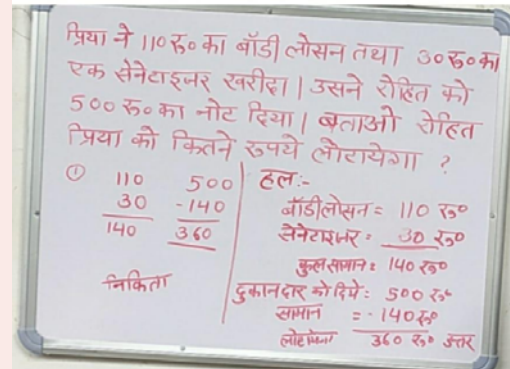 प्रिया ने 110 रु० का बॉडी लोसन तथा 30 रु० का
एक सेनेटाइजर खरीदा। उसने रोहित को
500 रु० का नोट दिया। बताओ रोहित
प्रिया को कितने रुपये लौटायेगा ?
① 110 500
30 -140
140 360
निकिता
हल:-
बॉडीलोसन = 110 रु०
सेनेटाइजर = 30 रु०
कुल सामान = 140 रु०
दुकानदार को दिये = 500 रु०
सामान = - 140 रु०
360 रु० उत्तर